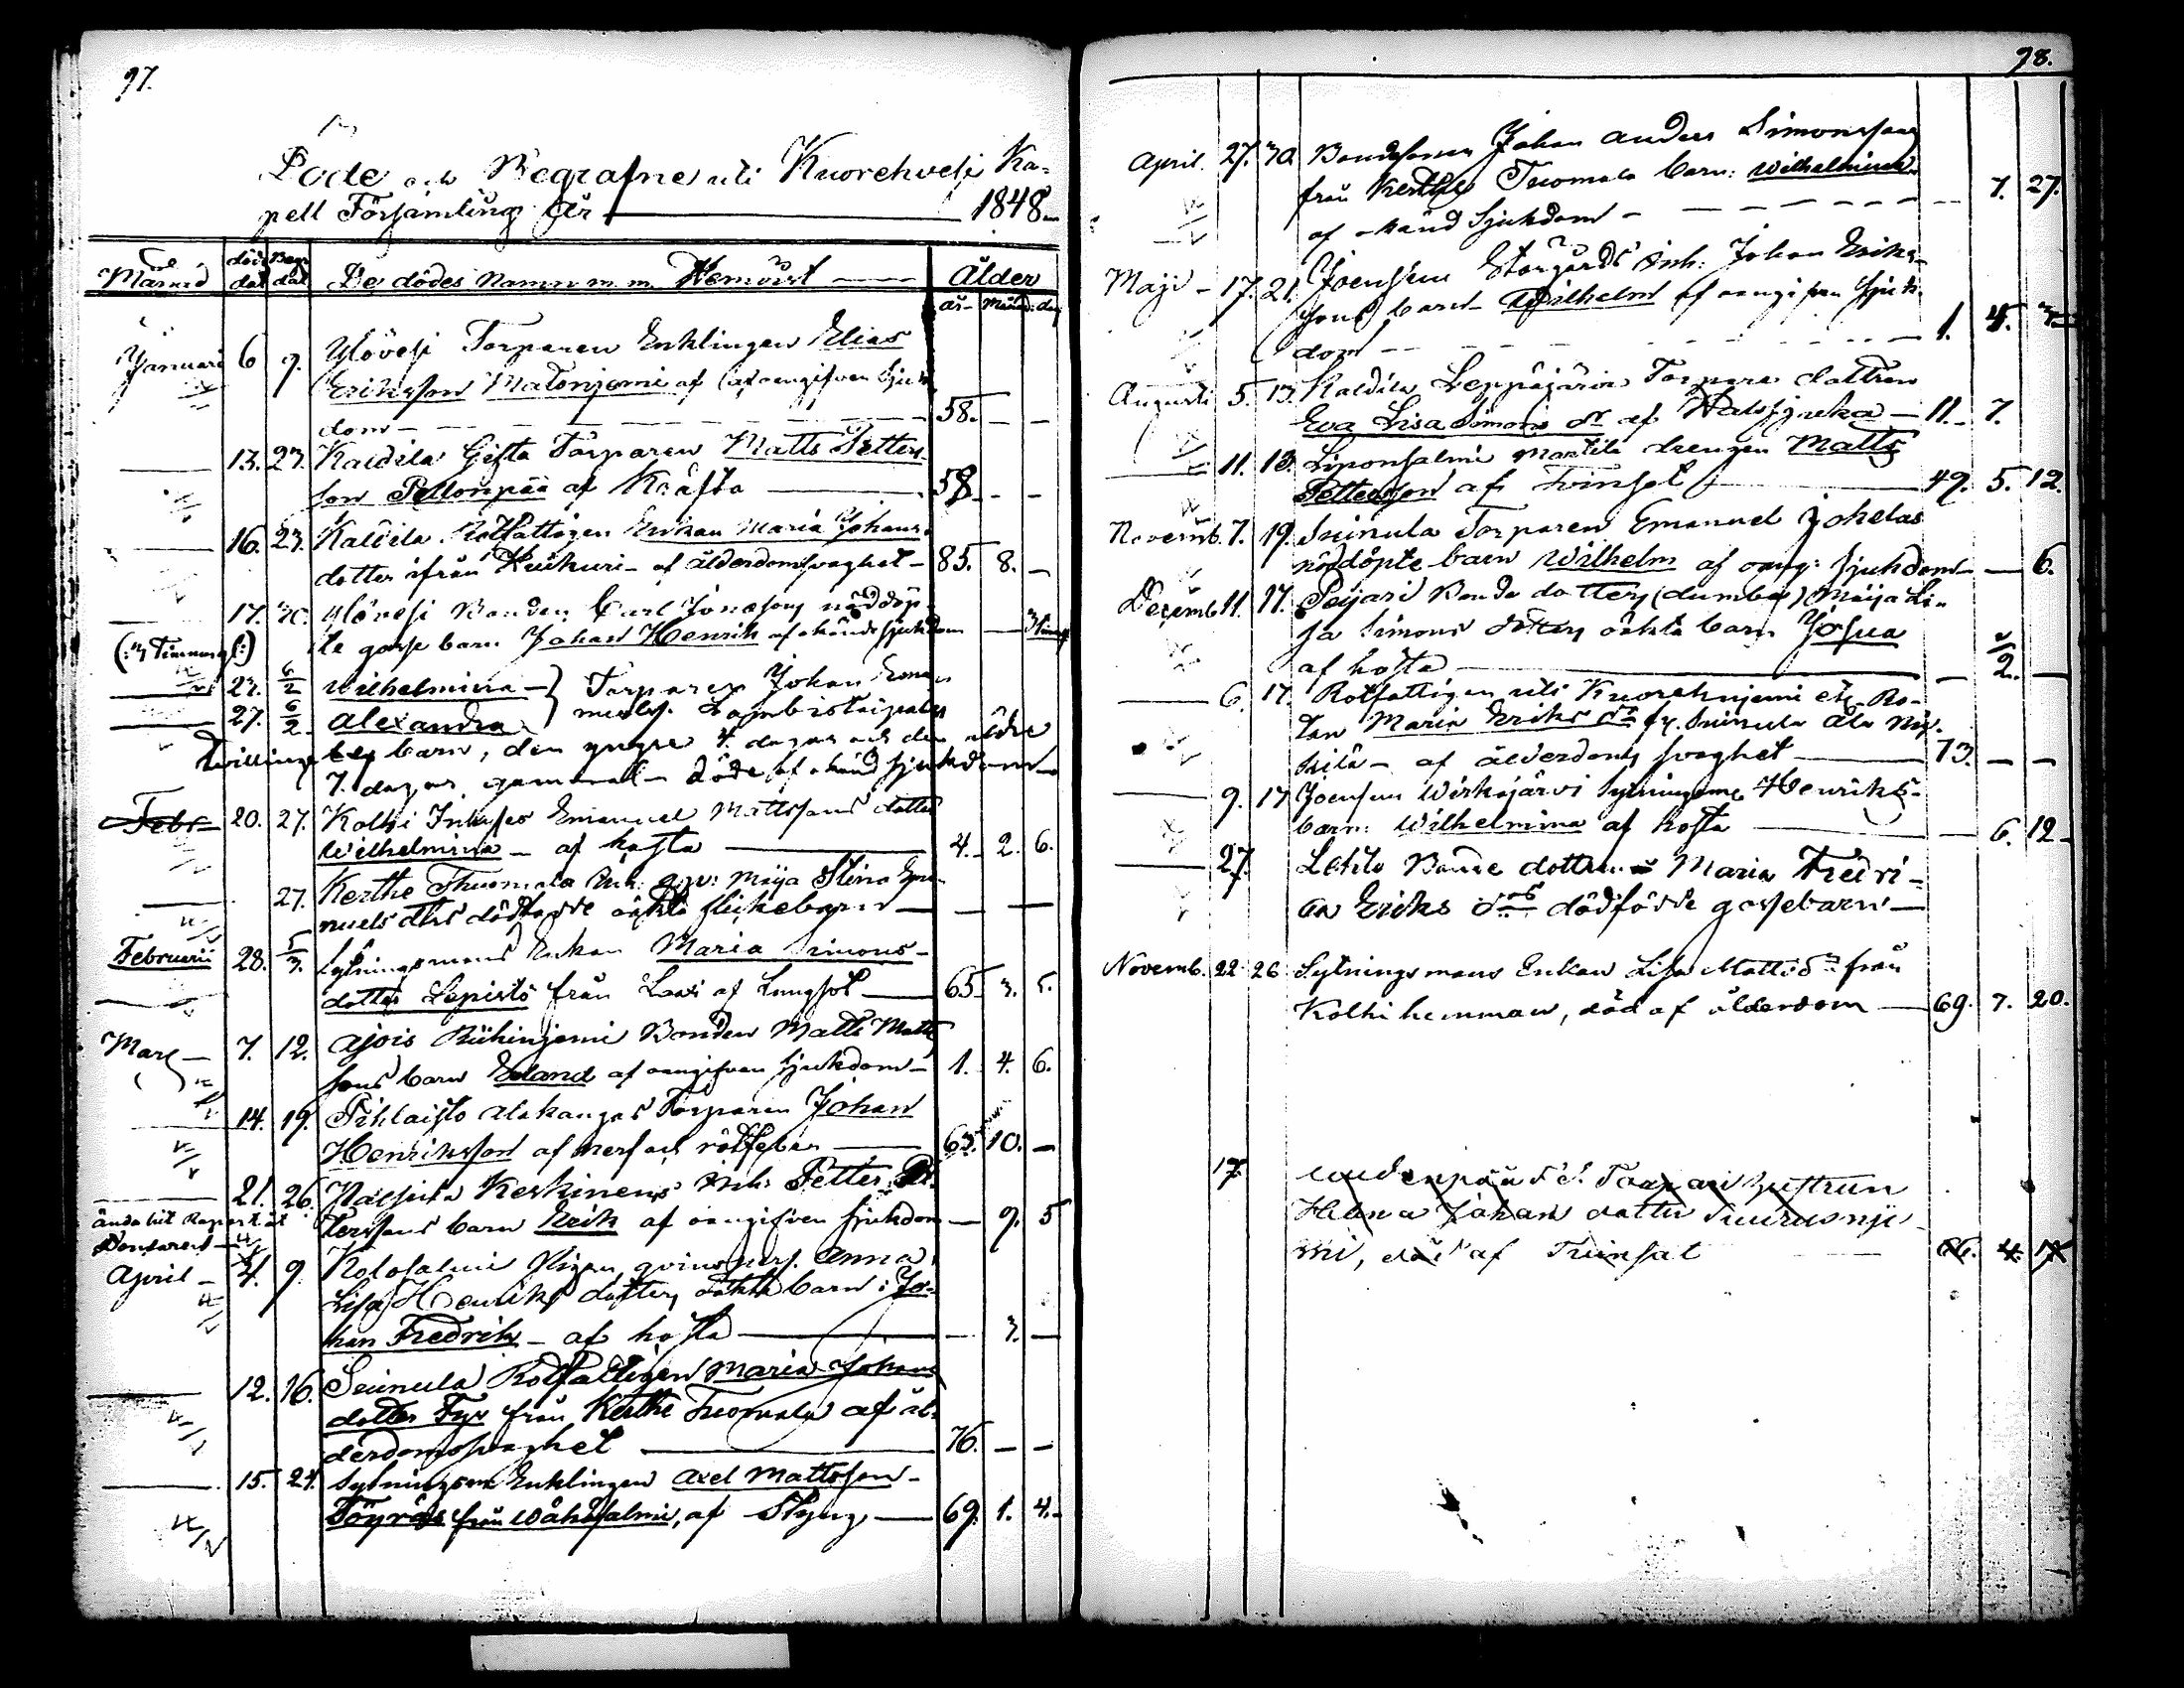 97.
Döde och Begrafne uti Kuorehvesi Ka-
pell Församling År 1848
Månad död dat Begr dat De dödes Namn m. m. Hemvist Ålder
år Månad dag
Januari 6 9. Ylövesi Torparen Enklingen Elias
Eriksson Matonjemi af oangifven Sjuk
dom 58. - -
13. 23. Kaldila Gifta Torparen Matts Petters
son Peltonpää af Kräfta 58. - -
16. 23. Kaldila Rotfattigen Enkan Maria Johans
dotter ifrån Kuihuri - af ålderdomsvaghet - 85. 8. -
17. 30. Ylövesi Bonden Carl Jonæsons nöddöp-
te gosse barn Johan Henrik af okänd sjukdom
23. 6/2 Wilhelmina - } Torparen Johan
27. 6/2 Alexandra
Tvillinge barn, den yngre 4. dagar och den äldre
7. dagar gammal - döde af okänd sjukdom
Febr 20. 27. Kolhi Inhyses Emanuel Mattssons dotter
Wilhelmina - af hosta 4. 2. 6.
27. Kerthe Thuomala Maija Stina
nuels dtrs dödfödde oäkta flickebarn - -
Februarii 28. 5/3. Sytningsmans Enkan Maria Simons-
dotter Lepistö från Lasi af Lungsot 65. 3. 5.
Mars 7. 12. Ajois Riihinjemi Bonden Matts Matts
sons barn Erland af oangifven sjukdom - 1. 4. 6.
14. 19. Pihlaisto Alakangas Torparen Johan
Henriksson af nerf och rötfeber 63. 10. -
21. 26. Keskinens Inh: Petter Pet-
terssons barn Erik af oangifven sjukdom - 9. 5
ända hit Raport åt
April - 4. 9. Kolosalmi Pigan qvinspers. Anna
Lisa Henriks dotters oäkta barn: Jo-
han Fredrik - af hosta - 3. -
12. 16. Suinula Rotfattigen Maria Johans
dotter Fyr från Kerthe Tuomala af ål-
derdomsvaghet 76. - -
15. 24. Sytningsm Enklingen Axel Mattsson
Töyräs från Wåhåsalmi, af Styng 69. 1. 4.
98.
April 27. 30. Bondesonen Johan Anders Simonssons
från Kerthe Tuomala barn: Wilhelmina
af okänd Sjukdom - 7. 27.
Maji - 17. 21. Joensuu Storgårds Inh: Johan Eriks-
sons barn Wilhelm af oangifven sjuk-
dom 1. 4. 3
Augusti 5. 13. Kaldila Leppäjärvi Torpare dottren
Eva Lisa Simons dr af Halssjuka - 11. 7.
11. 13. Liponsalmi Marttila drengen Matts
Pettersson af Tvinsot 49. 5. 12.
Novemb. 7. 19. Suinula Torparen Emanuel Johelas
nöddöpte barn Wilhelm af oang: sjukdom - - 6.
Decemb 11. 17. Peijari Bonde dotters (dumbes) Maija Li-
sa Simons dotters oäkta barn Josua
af hosta - 2. -
6. 17. Rotfattigen uti Kuorehnjemi etc. Ro-
tan Maria Eriks dr fr. Suinula Ala
kilä - af ålderdoms svaghet 73. - -
9. 17 Joensuu Wirkajärvi Sytningsme Henriks
barn: Wilhelmina af hosta - 6. 12
27. Lehto Bonde dottren Maria Fredri-
ka Eriks drs dödfödde gossebarn -
Novemb. 22 26 Sytningsmans Enkan Lisa Matts dr från
Kolhi hemman, död af ålderdom 69. 7. 20.
17. Torpari hustrun
Helena Johans dotter
mi, död af Tvinsot 66. 4. 17